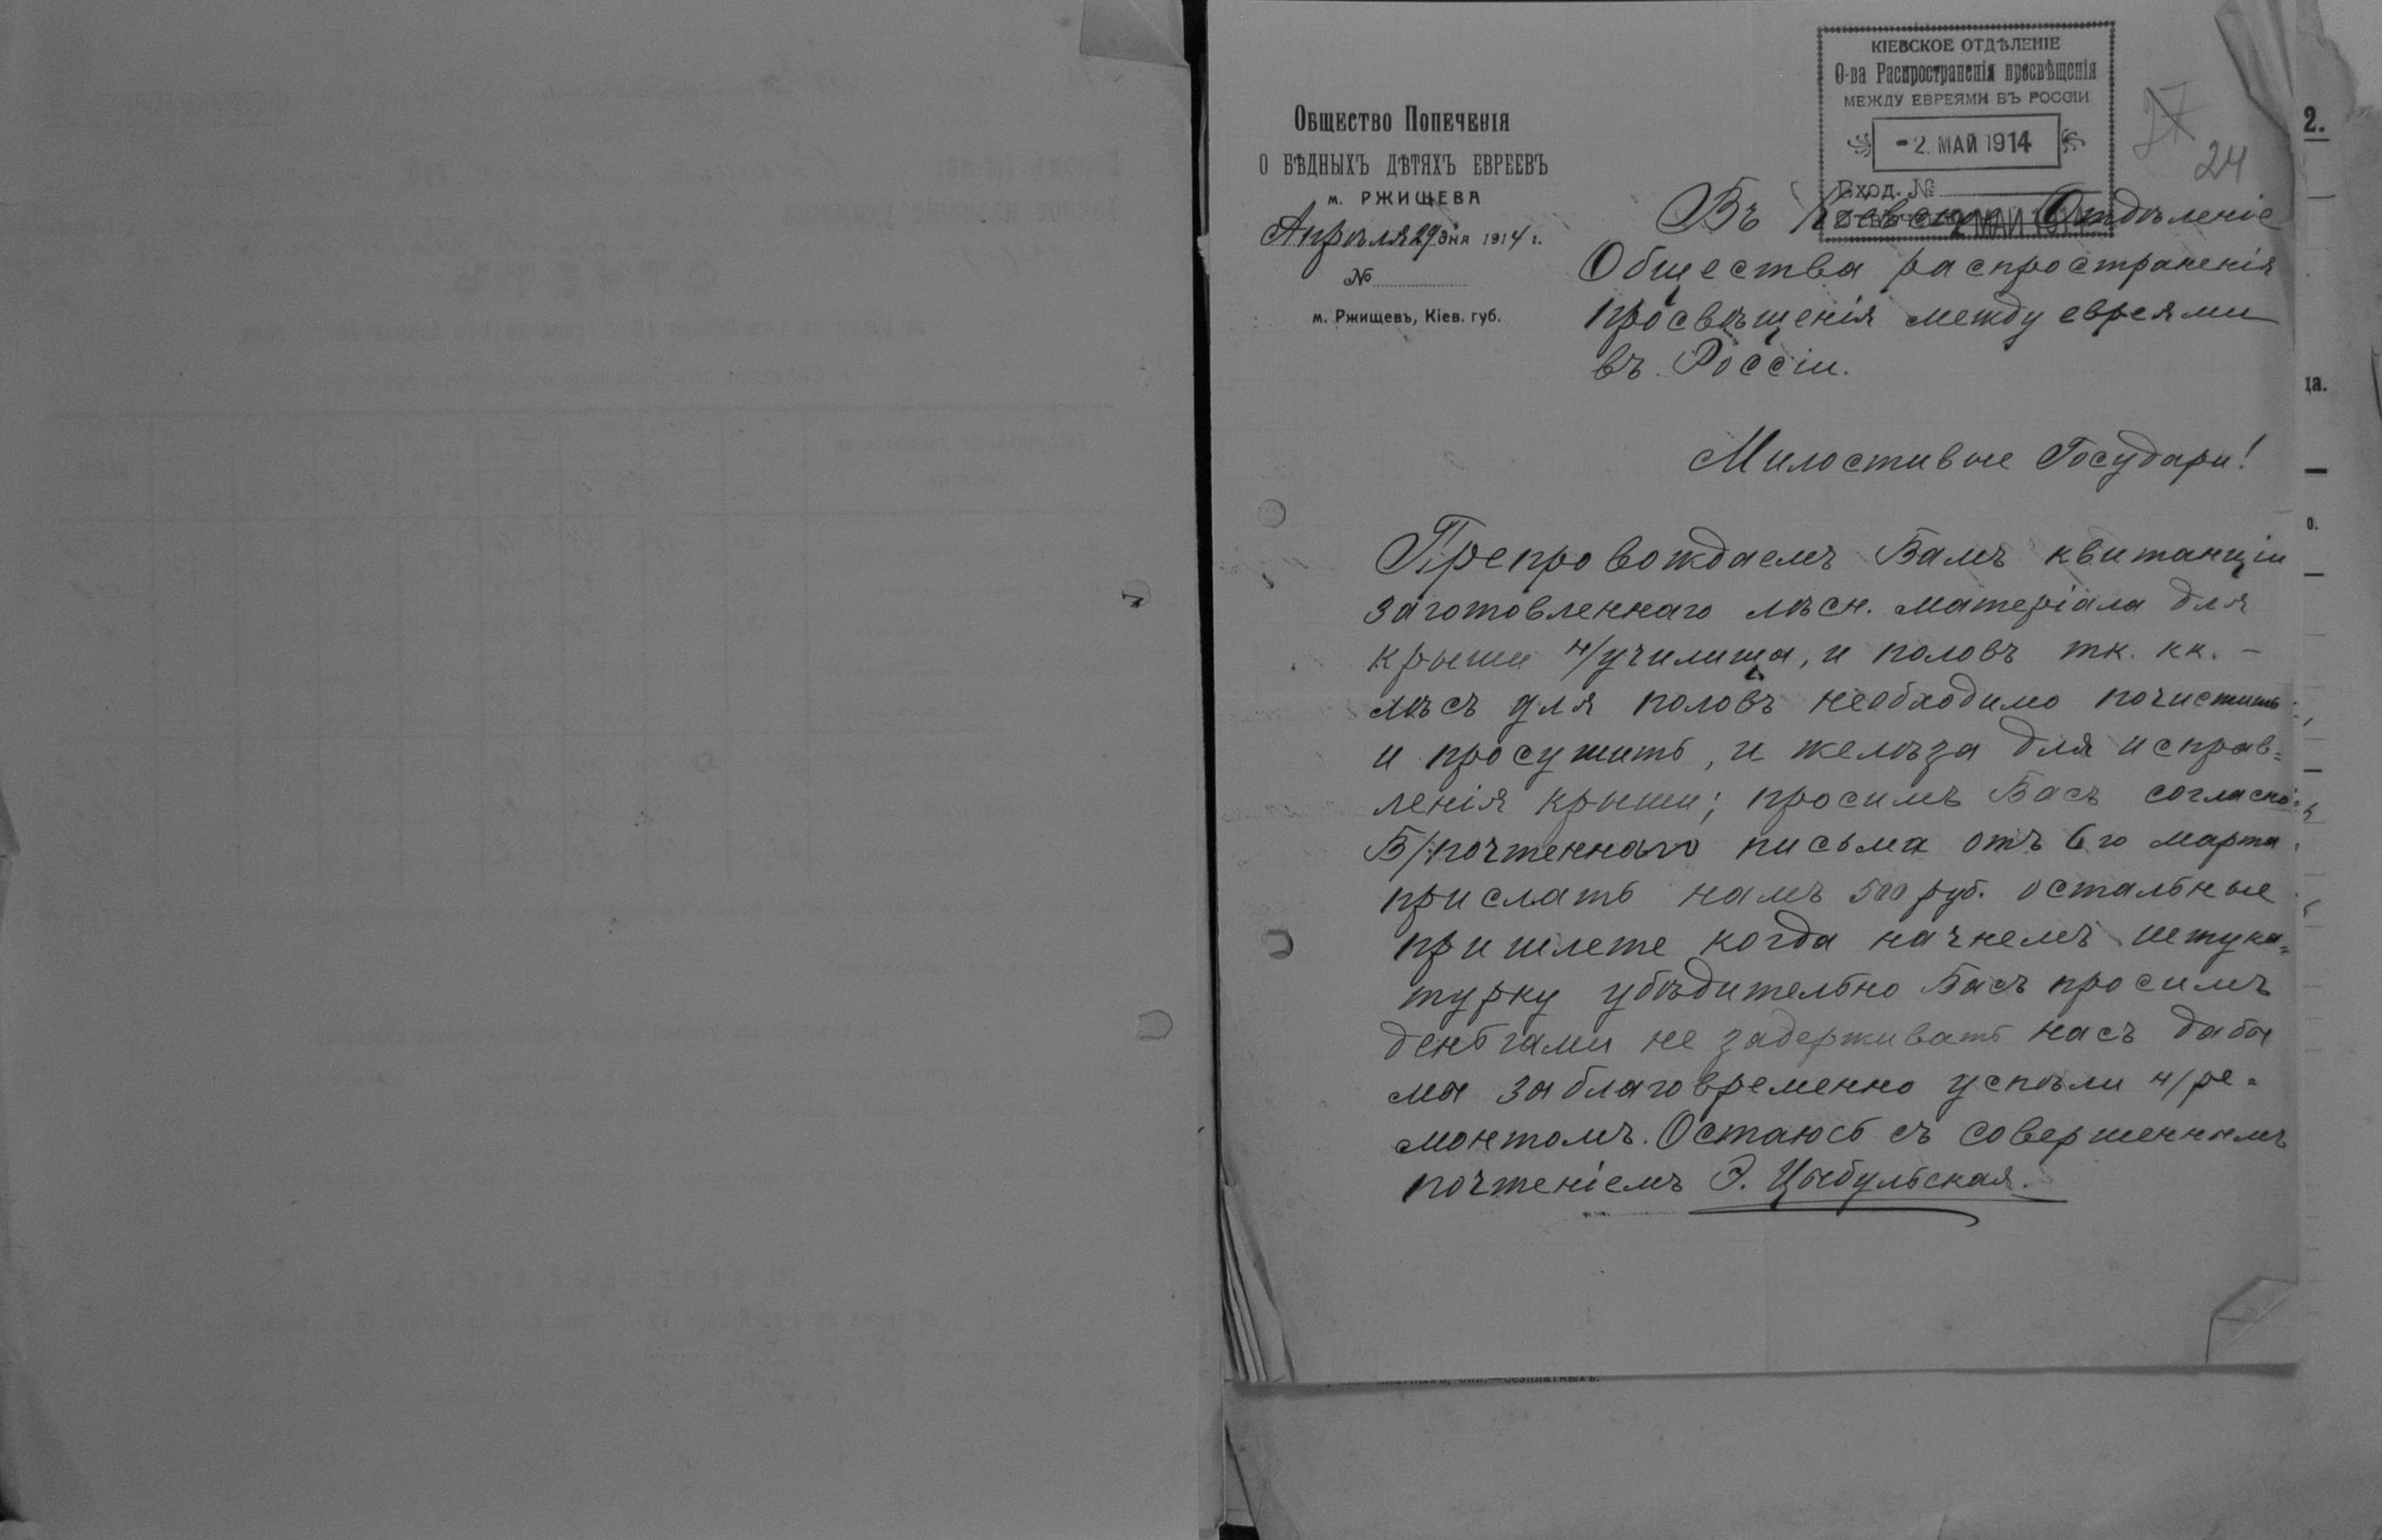 КІЕВСКОЕ ОТДѢЛЕНІЕ
О-ва Распространенія просвѣщенія
МЕЖДУ ЕВРЕЯМИ ВЪ РОССІИ
- 2. МАЙ 1914
Вход. №
2 МАЙ 1914
24
Общество Попеченія
О БѢДНЫХЪ ДѢТЯХЪ ЕВРЕЕВЪ
м. РЖИЩЕВА
Апрѣля 29 дня 1914 г.
№
м. Ржищевъ, Кіев. губ.
Въ Кіевское Отдѣленіе
Общества распространенія
просвѣщенія между евреями
въ Россіи.
Милостивые Государи!
Препровождаемъ Вамъ квитанціи
заготовленнаго лѣсн. матеріала для
крыши н/училища, и половъ тк. кк. –
лѣсъ для половъ необходимо почистить
и просушить, и желѣза для исправ=
ленія крыши; просимъ Васъ согласно
В/почтеннаго письма отъ 6го марта
прислать намъ 500 руб. остальные
пришлете когда начнемъ штука=
турку убѣдительно Васъ просимъ
деньгами не задерживать насъ дабы
мы заблаговременно успѣли н/ре=
монтомъ. Остаюсь съ совершеннымъ
почтеніемъ Э. Цыбульская.
2.
ца.
о.